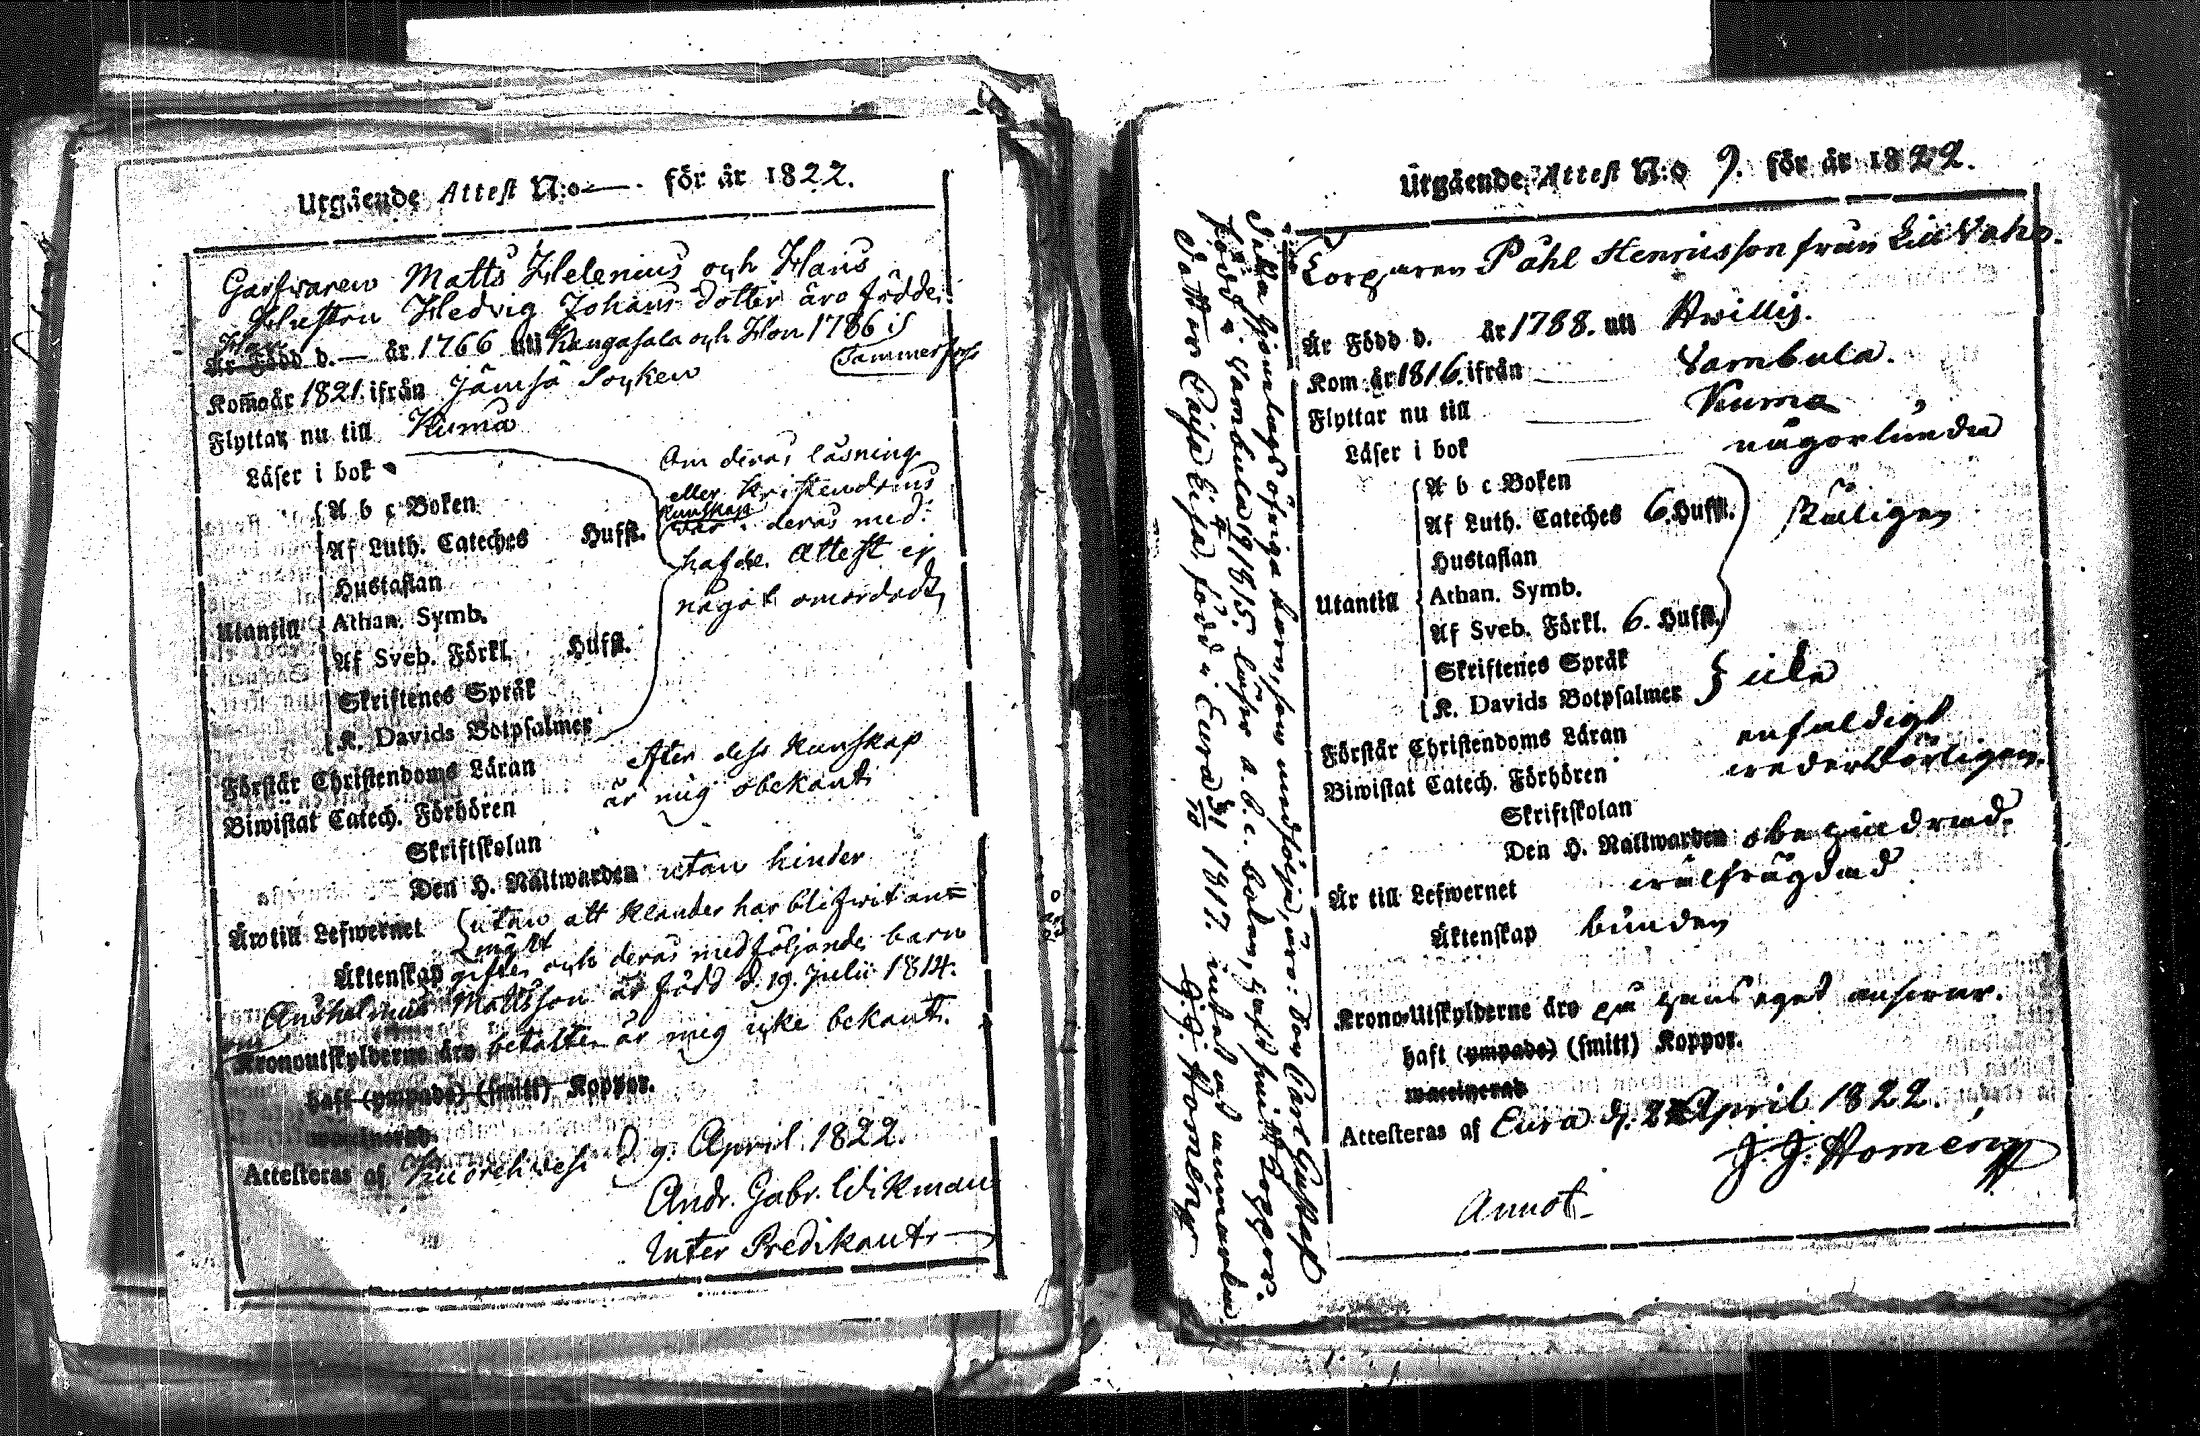 Utgående Attest N:o —. för år 1822.
Garfvaren Matts Helenius och Hans
Hustru Hedvig Johans dotter äro födde
Han
Är Född d. — år 1766 uti Kangasala och Hon 1786 i
Tammerfors
Kom år 1821 ifrån Jämsä Socken
Flyttar nu till Kuma
Läser i bok
Om deras läsning
A b c Boken
eller Kristendoms
kunskap
Af Luth. Cateches Hufst.
deras med:
hafde Attest ej
Hustaflan
något omordadt
Utantill
Athan. Symb.
Af Sveb. Förkl. Hufst.
Skriftenes Språk
K. Davids Botpsalmer
Förstår Christendoms Läran
efter dess Kunskap
är mig obekant
Biwistat Catech. Förhören
Skriftskolan
Den H. Nattwarden utan hinder
Äro till Lefwernet utan att klander har blifwit an=
märkt
Äktenskap gifte och deras medföljande barn
Mattsson är född d. 19. Julii 1814.
om
Kronoutskylderne äro betalte är mig icke bekant.
haft (ympade) (smitt) Koppor.
waccinerad
Attesteras af Kuorehvesi d 9. April. 1822.
Andr. Gabr. Wikman
Inter Predikant
Utgående Attest N:o 9. för år 1822.
Påhl Henriksson från
Är Född d. år 1788. uti Hvittis.
Kom år 1816. ifrån Vambula.
Flyttar nu till Kuma
Läser i bok någorlunda
A b c Boken
Af Luth. Cateches 6. Hufst.
Hustaflan
Utantill
Athan. Symb.
Af Sveb. Förkl. 6. Hufst.
Skriftenes Språk
K. Davids Botpsalmer
icke
Förstår Christendoms Läran enfaldigt
Biwistat Catech. Förhören wederbörligen.
Skriftskolan
Den H. Nattwarden obehindrad.
Är till Lefwernet wälfrägdad
Äktenskap bunden
Krono-Utskylderne äro på hans eget answar.
haft (ympade) (smitt) Koppor.
waccinerad
Attesteras af Eura d. April 1822.
J. J. Homén
Annot.
öfriga barn, som medfölja, äro: Son Carl Gustaf
född i Vambula 1815. läser a. b. c. boken, haft smitt koppor.
Dotter Cajsa Lisa, född i Eura 1817.
J. J. Homén